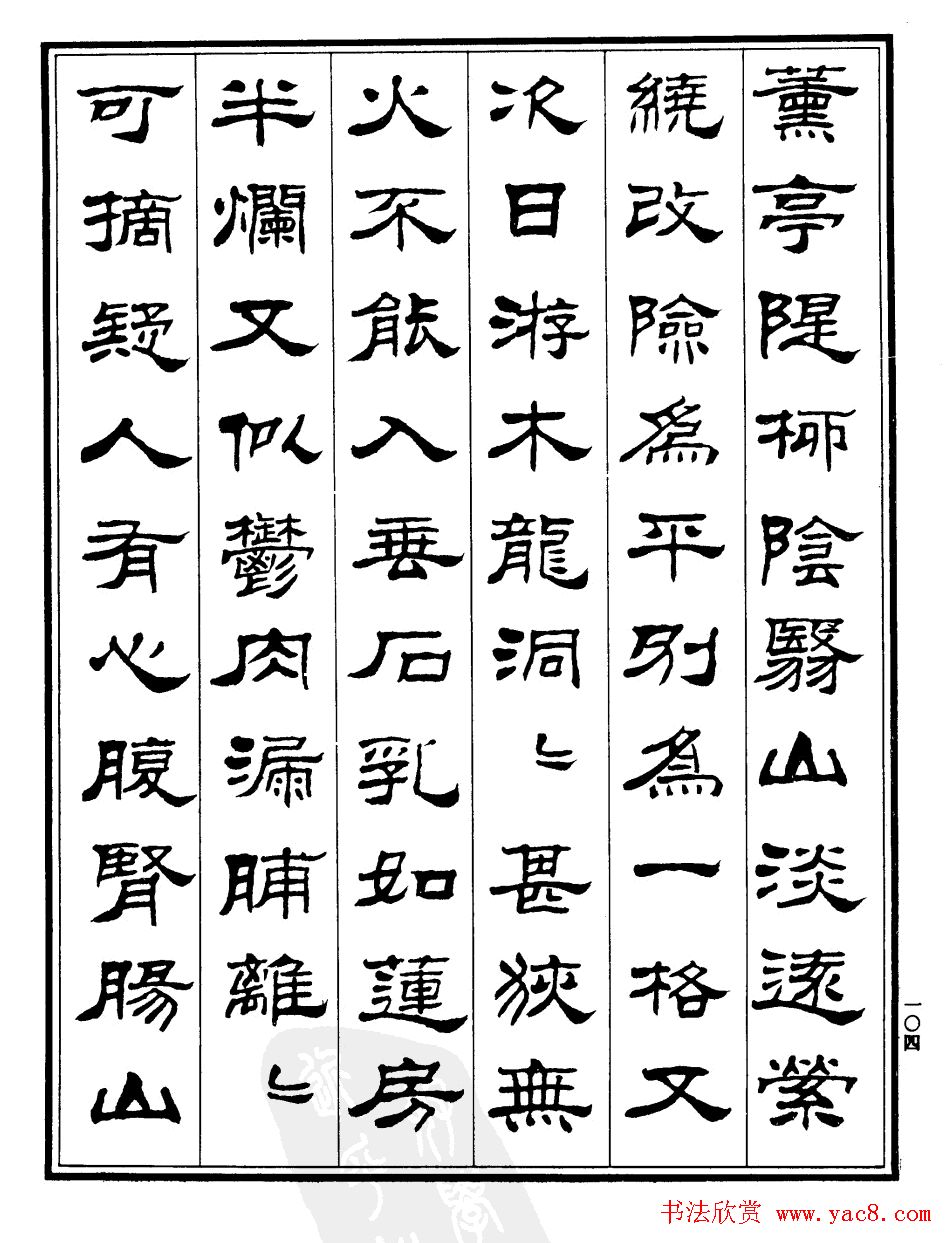 薰亭隄柳陰翳山淡遠縈
繞改險爲平別爲一格又
次日游木龍洞〻甚狹無
火不能入垂石乳如蓮房
半爛又似鬱肉漏脯離〻
可摘疑人有心腹腎腸山
一〇四
书法欣赏 www.yac8.com